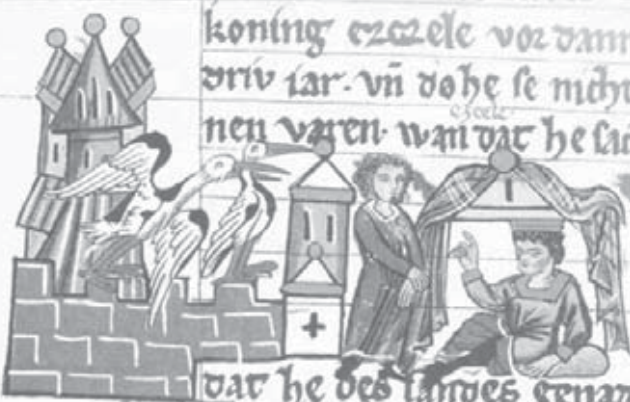 koning ezczele vor dann
driv iar. vñ do he se nicht
ezcele
nen varen. wan dat he sac
dat he des landes genan